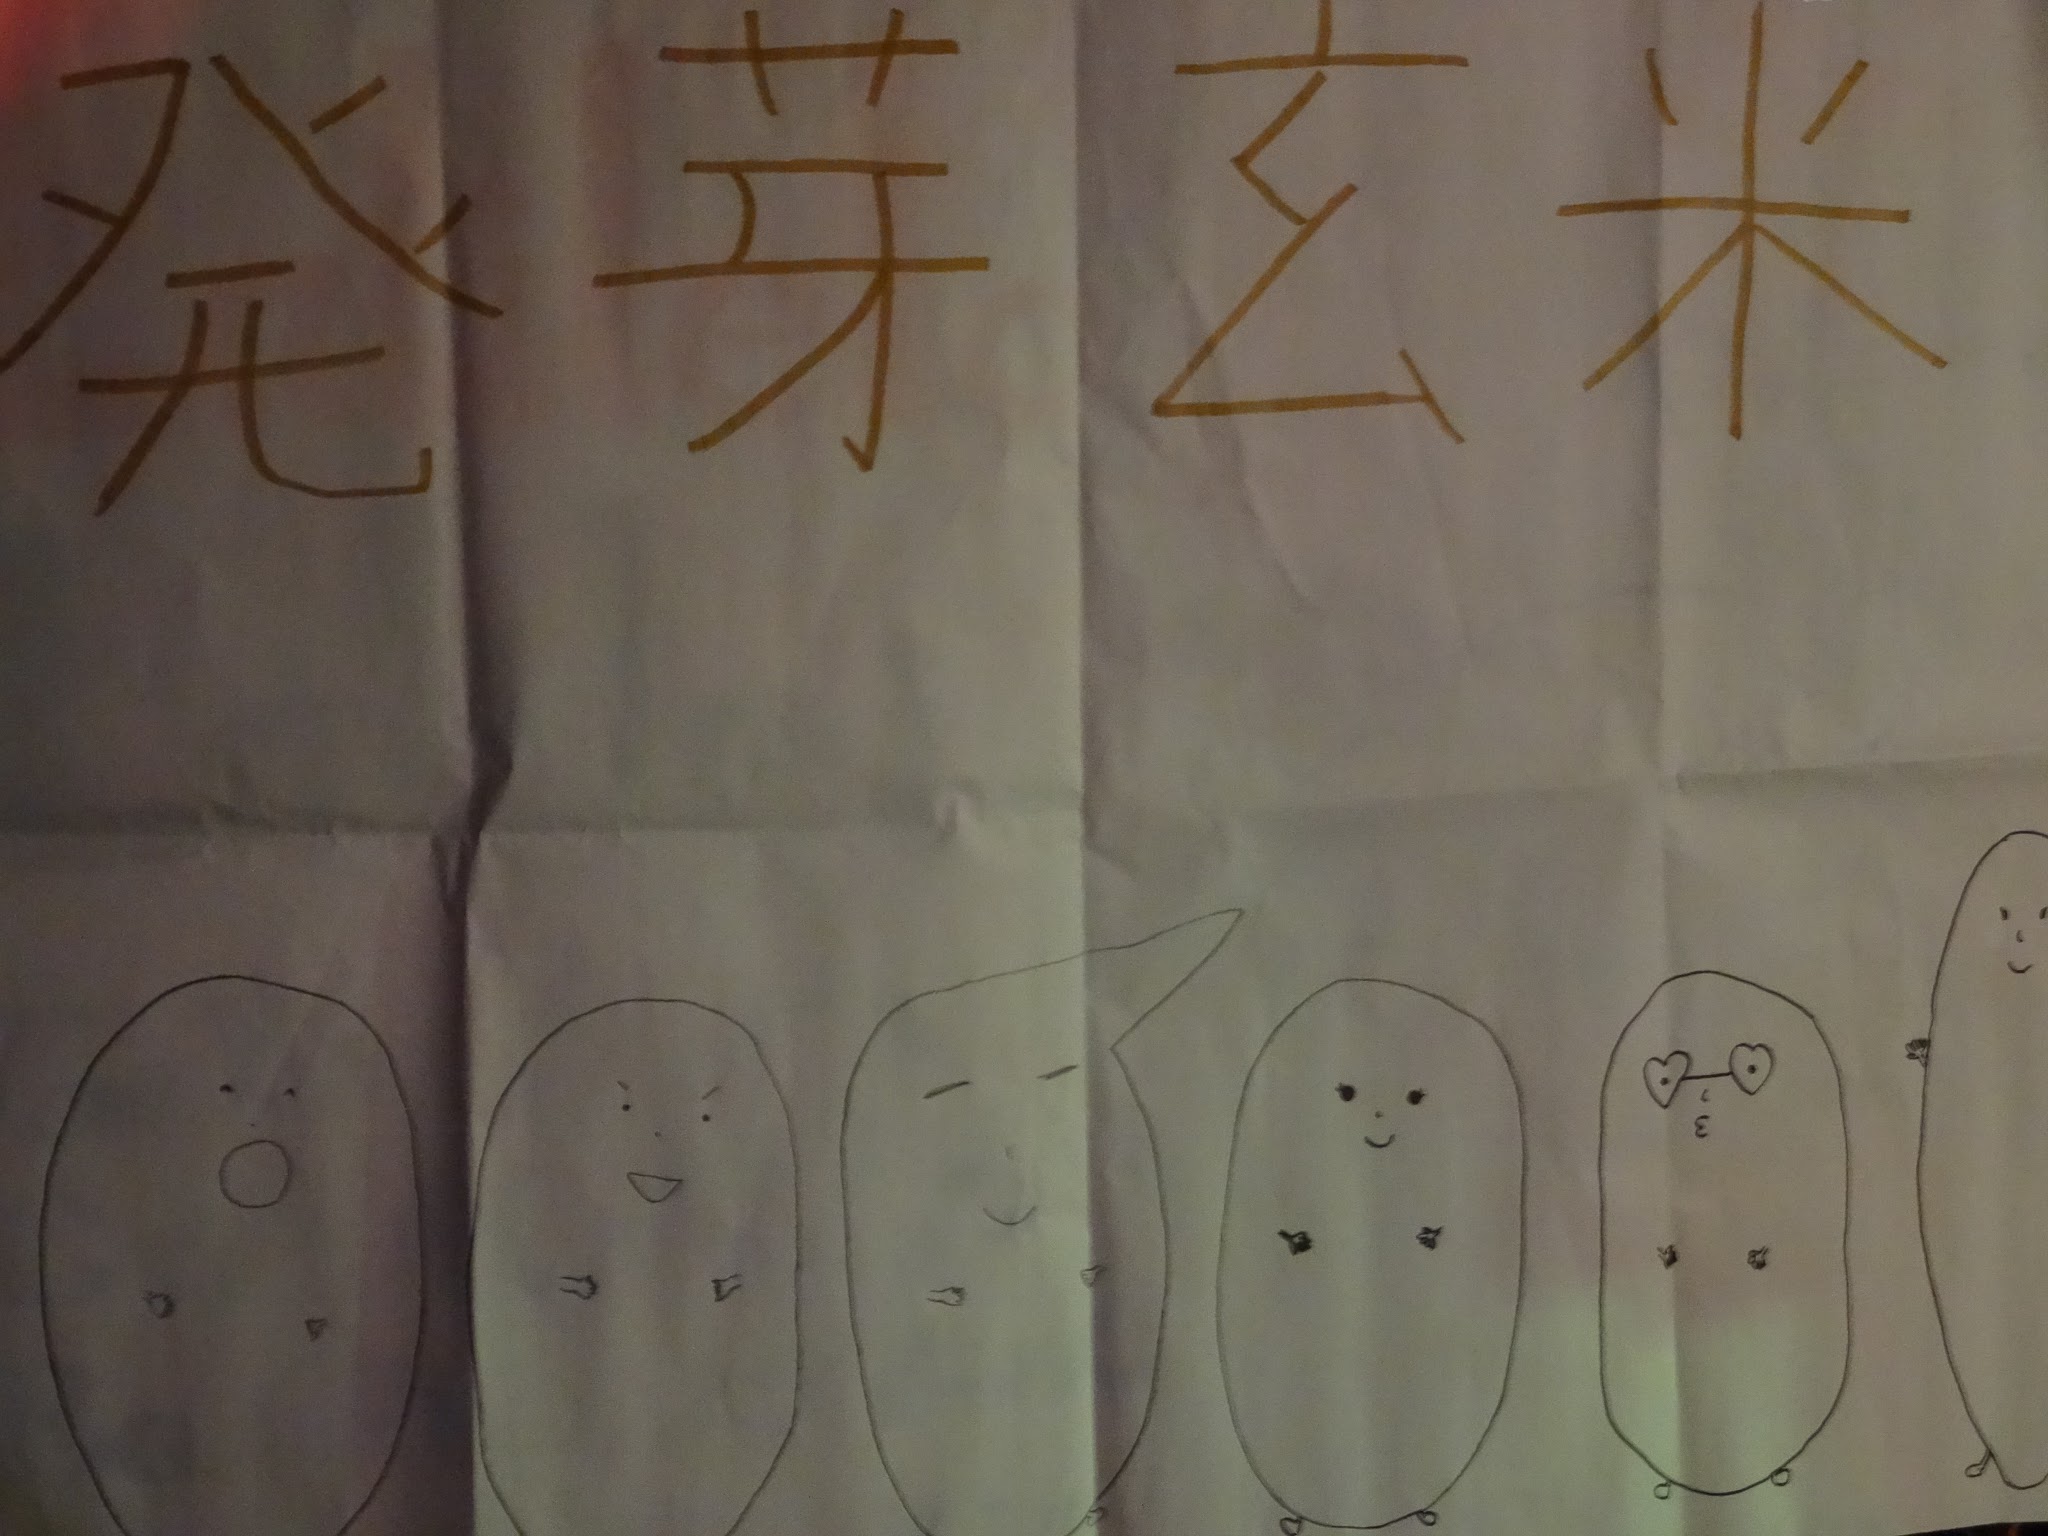 発芽玄米